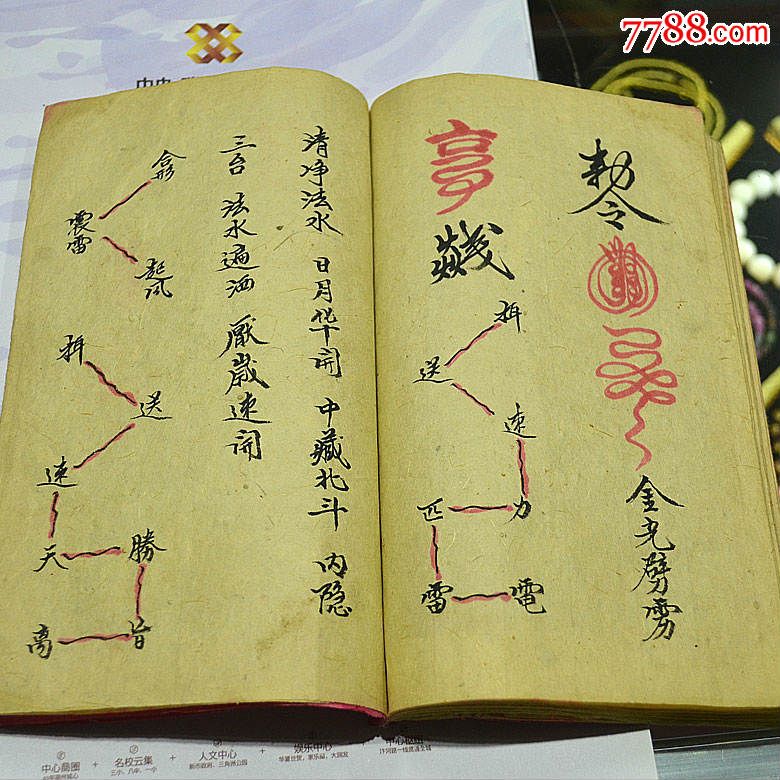 7788.com
勅令
金光劈雳
拜
送
速
力
匹
雷
電
清净法水 日月华开 中藏北斗 内隐
三台 法水遍洒 厭歳速開
震雷
起风
拜
送
速
天
勝
旨
离
中心商圈 + 名校云集 + 人文中心 + 娱乐中心 +